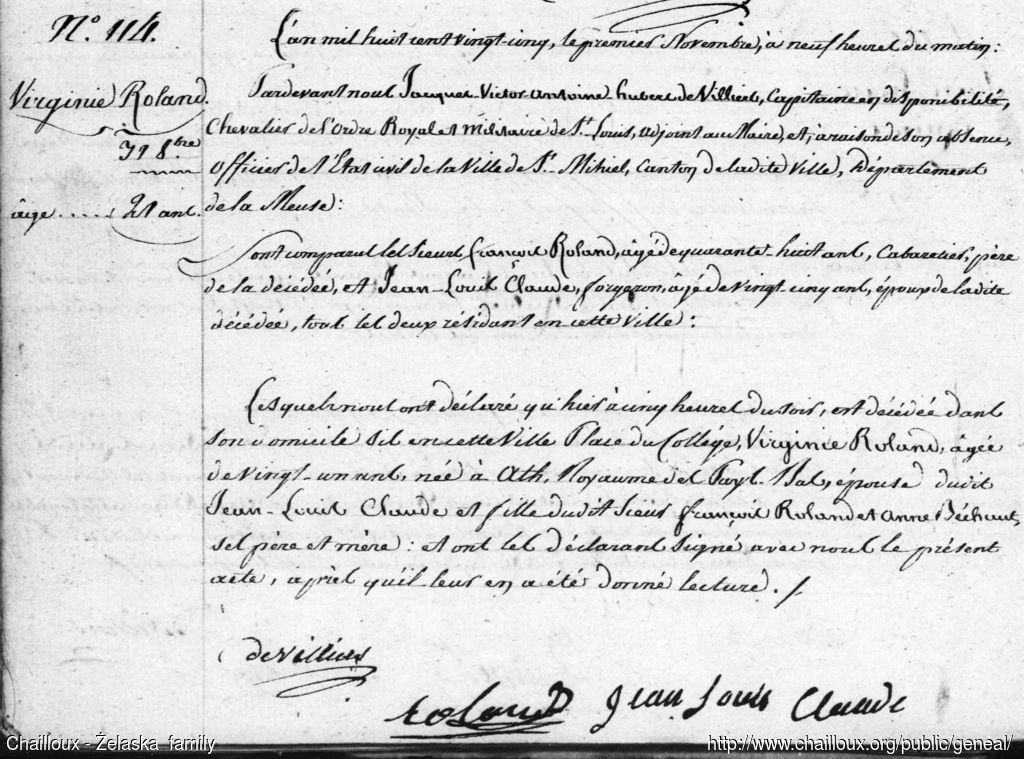 N.o 114.
L'an mil huit cent vingt-cinq, le premier Novembre, à neuf heures du matin:
Virginie Roland.
31 8.bre
âge..... 21 ans.
Pardevant nous Jacques-Victor-Antoine hubert de Villiers, Capitaine en disponibilité,
Chevalier de l'Ordre Royal et Militaire de S.t Louis, adjoint au Maire, et, à raison de son absence,
Officier de l'Etat civil de la Ville de S.t Mihiel, Canton de ladite Ville, Département
de la Meuse:
Sont comparus les Sieurs françois Roland, âgé de quarante-huit ans, Cabaretier, père
de la décédée, et Jean-Louis Claude, forgeron, âgé de vingt cinq ans, époux de ladite
décédée, tous les deux résidant en cette Ville:
Lesquels nous ont déclaré qu'hier à cinq heures du soir, est décédée dans
son domicile sis en cette Ville Place du Collége, Virginie Roland, âgée
de vingt-un ans, née à Ath, Royaume des Pays-Bas, épouse dudit
Jean-Louis Claude et fille dudit Sieur françois Roland et Anne
ses père et mère: et ont les déclarans signé avec nous le présent
acte, après qu'il leur en a été donné lecture./.
deVilliers
Roland Jean Louis Claude
Chailloux - Żelaska family
http://www.chailloux.org/public/geneal/